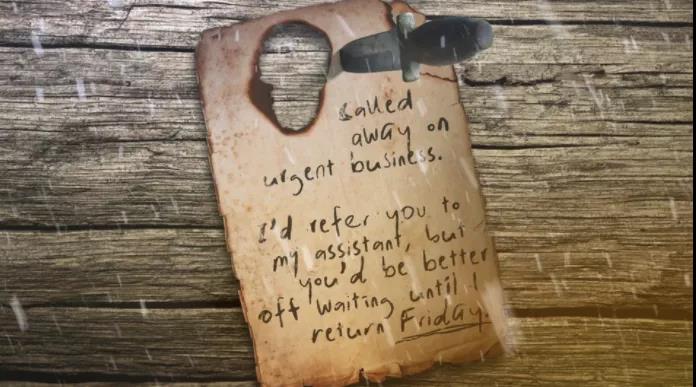 Called
away on
urgent business.
I'd refer you to
my assistant, but
you'd be better
off waiting until I
return Friday.